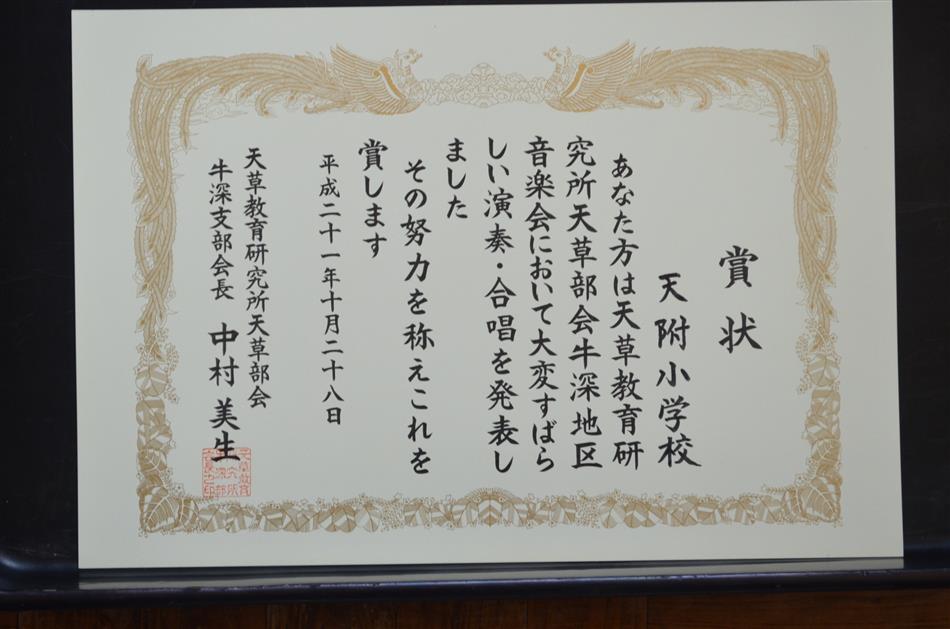 賞状
天附小学校
あなた方は天草教育研
究所天草部会牛深地区
音楽会において大変すばら
しい演奏・合唱を発表し
ました
その努力を称えこれを
賞します
平成二十一年十月二十八日
天草教育研究所天草部会
牛深支部会長 中村美生